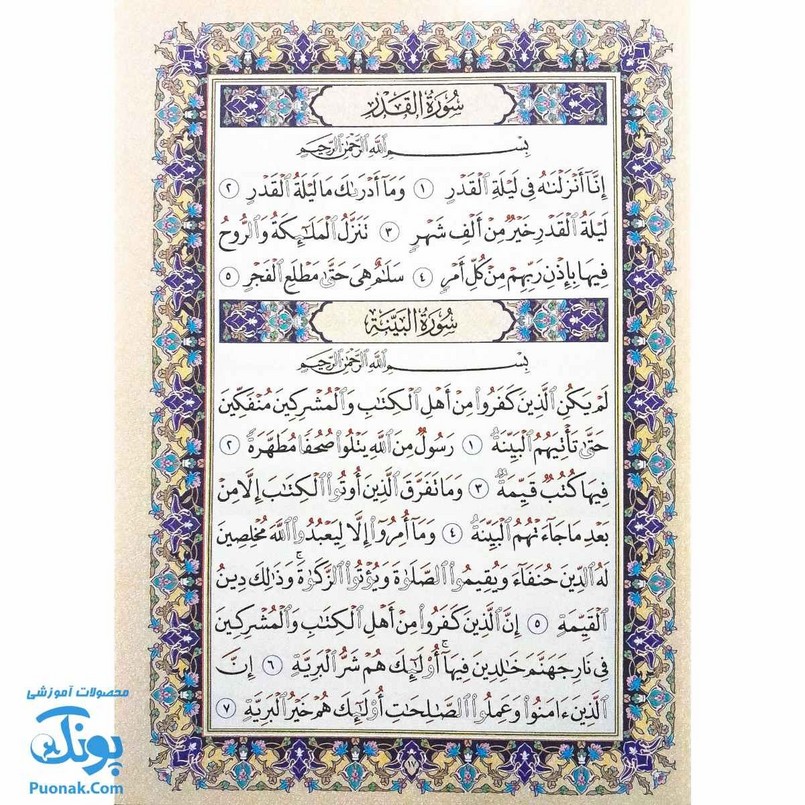 سُورَةُ القَدْرِ
بِسْمِ اللَّهِ الرَّحْمَٰنِ الرَّحِيمِ
إِنَّا أَنْزَلْنَاهُ فِي لَيْلَةِ الْقَدْرِ ١ وَمَا أَدْرَاكَ مَا لَيْلَةُ الْقَدْرِ ٢
لَيْلَةُ الْقَدْرِ خَيْرٌ مِنْ أَلْفِ شَهْرٍ ٣ تَنَزَّلُ الْمَلَائِكَةُ وَالرُّوحُ
فِيهَا بِإِذْنِ رَبِّهِمْ مِنْ كُلِّ أَمْرٍ ٤ سَلَامٌ هِيَ حَتَّىٰ مَطْلَعِ الْفَجْرِ ٥
سُورَةُ البَيِّنَةِ
بِسْمِ اللَّهِ الرَّحْمَٰنِ الرَّحِيمِ
لَمْ يَكُنِ الَّذِينَ كَفَرُوا مِنْ أَهْلِ الْكِتَابِ وَالْمُشْرِكِينَ مُنْفَكِّينَ
حَتَّىٰ تَأْتِيَهُمُ الْبَيِّنَةُ ١ رَسُولٌ مِنَ اللَّهِ يَتْلُوا صُحُفًا مُطَهَّرَةً ٢
فِيهَا كُتُبٌ قَيِّمَةٌ ٣ وَمَا تَفَرَّقَ الَّذِينَ أُوتُوا الْكِتَابَ إِلَّا مِنْ
بَعْدِ مَا جَاءَتْهُمُ الْبَيِّنَةُ ٤ وَمَا أُمِرُوا إِلَّا لِيَعْبُدُوا اللَّهَ مُخْلِصِينَ
لَهُ الدِّينَ حُنَفَاءَ وَيُقِيمُوا الصَّلَوٰةَ وَيُؤْتُوا الزَّكَوٰةَ ۚ وَذَٰلِكَ دِينُ
الْقَيِّمَةِ ٥ إِنَّ الَّذِينَ كَفَرُوا مِنْ أَهْلِ الْكِتَابِ وَالْمُشْرِكِينَ
فِي نَارِ جَهَنَّمَ خَالِدِينَ فِيهَا ۚ أُولَٰئِكَ هُمْ شَرُّ الْبَرِيَّةِ ٦ إِنَّ
الَّذِينَ ءَامَنُوا وَعَمِلُوا الصَّالِحَاتِ أُولَٰئِكَ هُمْ خَيْرُ الْبَرِيَّةِ ٧
١٧
محصولات آموزشی
پونک
Puonak.Com